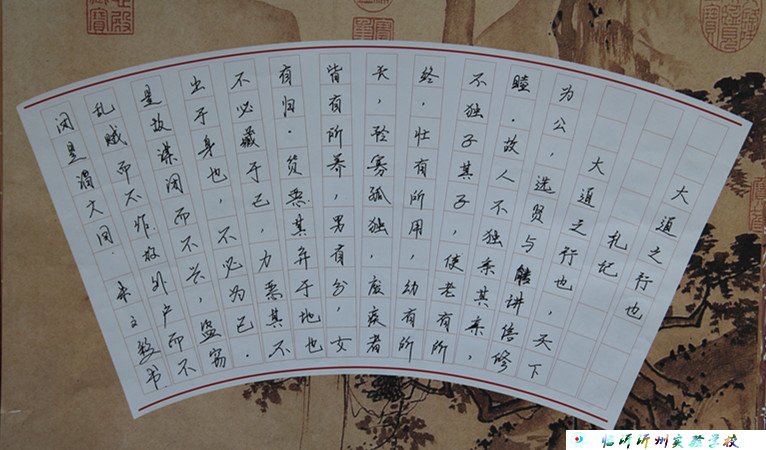 大道之行也
礼记
大道之行也，天下
为公，选贤与能讲信修
睦．故人不独亲其亲，
不独子其子，使老有所
终，壮有所用，幼有所
长，矜寡孤独，废疾者
皆有所养，男有分，女
有归．货恶其弃于地也
不必藏于己，力恶其不
出于身也，不必为己．
是故谋闭而不兴，盗窃
乱贼而不作故外户而不
闭是谓大同．
临沂沂州实验学校